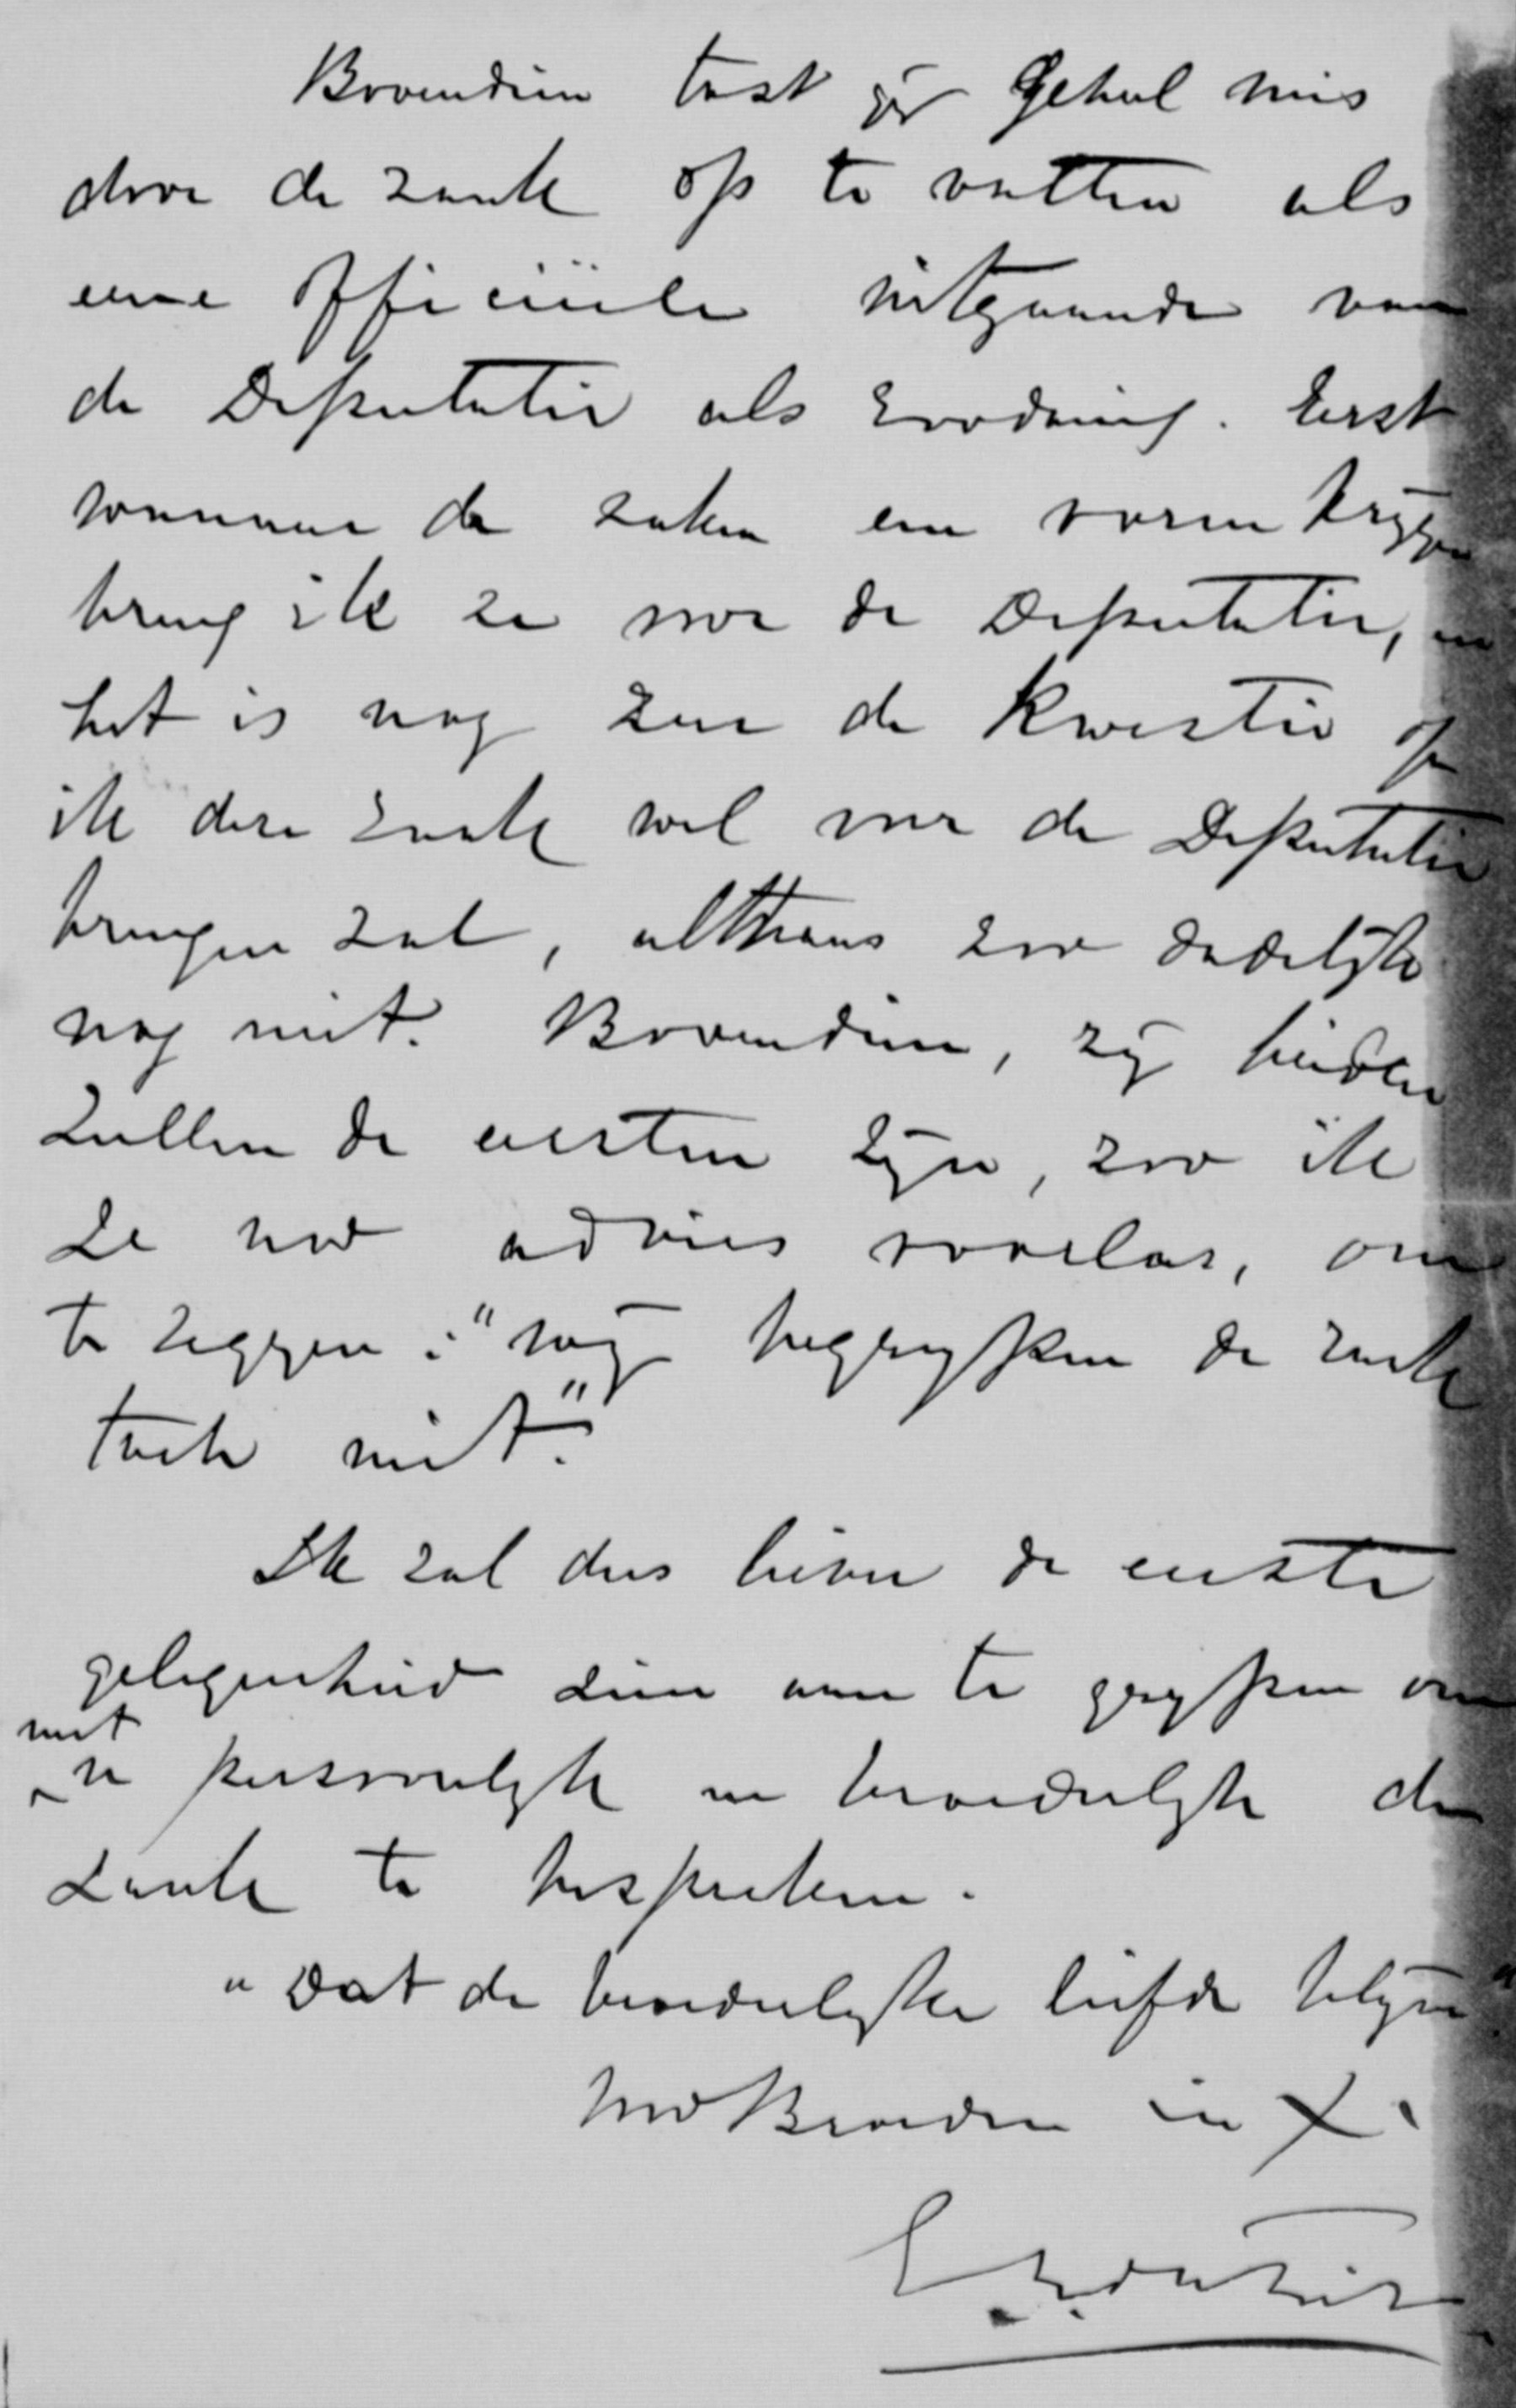 Bovendien tast gÿ geheel mis
door de zaak op te vatten als
eene officieele uitgaande van
de Deputatie als zoodanig. Eerst
wanneer de zaken een vorm krÿgen
breng ik ze voor de Deputatie, en
het is nog zeer de kwestie of
ik deze zaak wel voor de Deputatie
brengen zal, althans zoo dadelÿk
nog niet. Bovendien, zÿ beiden
zullen de eersten zÿn, zoo ik
ze uw advies voorlas, om
te zeggen: "wÿ begrÿpen de zaak
toch niet."
Ik zal dus liever de eerste
gelegenheid zien aan te grÿpen om
met
u persoonlÿk en broederlÿk de
zaak te bespreken.
"Dat de broederlÿke liefde blÿve"
Uw Broeder in X.